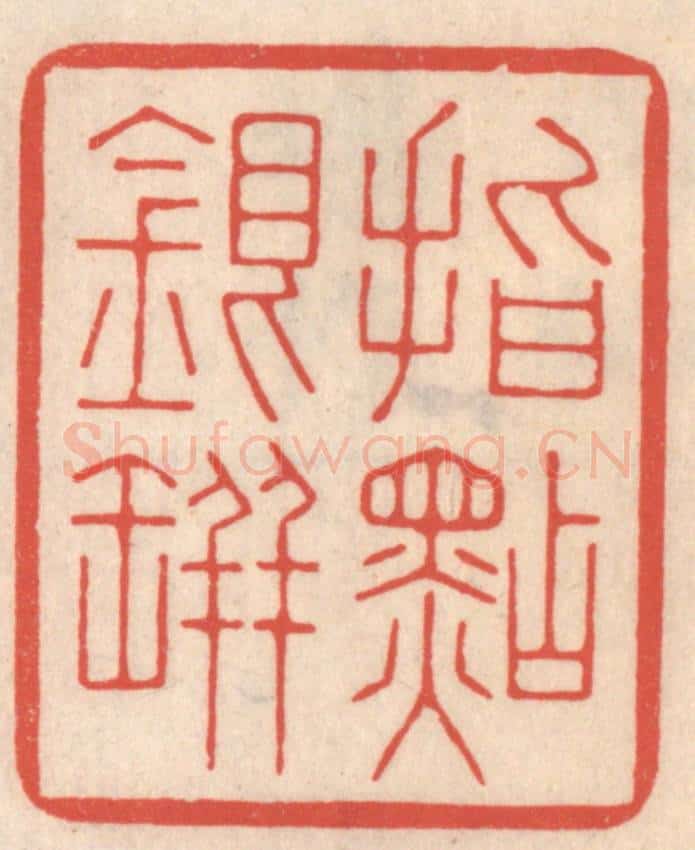 指點
銀缾
Shufawang.CN